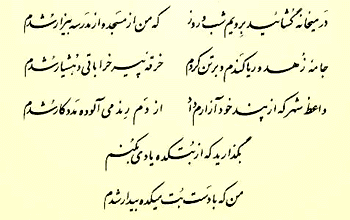 در میخانه گشائید برویم شب و روز که من از مسجد و از مدرسه بیزار شدم
جامه زهد و ریا کندم و بر تن کردم خرقه پیر خراباتی و هشیار شدم
واعظ شهر که از پند خود آزارم داد از دم رند می آلوده مددکار شدم
بگذارید که از بتکده یادی بکنم
من که با دست بت میکده بیدار شدم